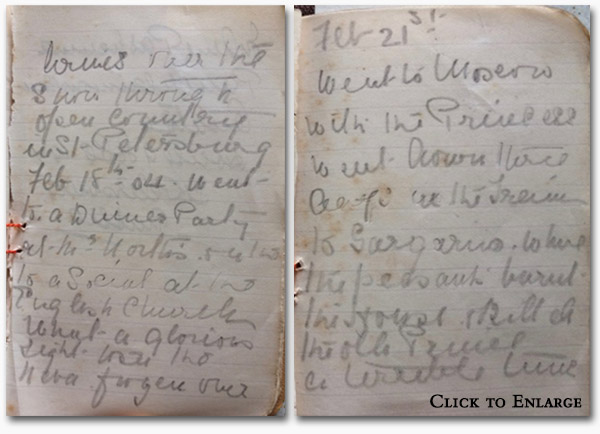 over the
Snow through
open country
in St Petersburg
Feb 18th 04. went
to a Dinner Party
at Mrs
to a Social at the
English Church
What a glorious
Sight was the
Neva frozen over
Feb 21st
Went to Moscow
with the Princess
went down three
days in the Train
to where
the peasants burnt
the & killed
the old Prince
a terrible time
CLICK TO ENLARGE